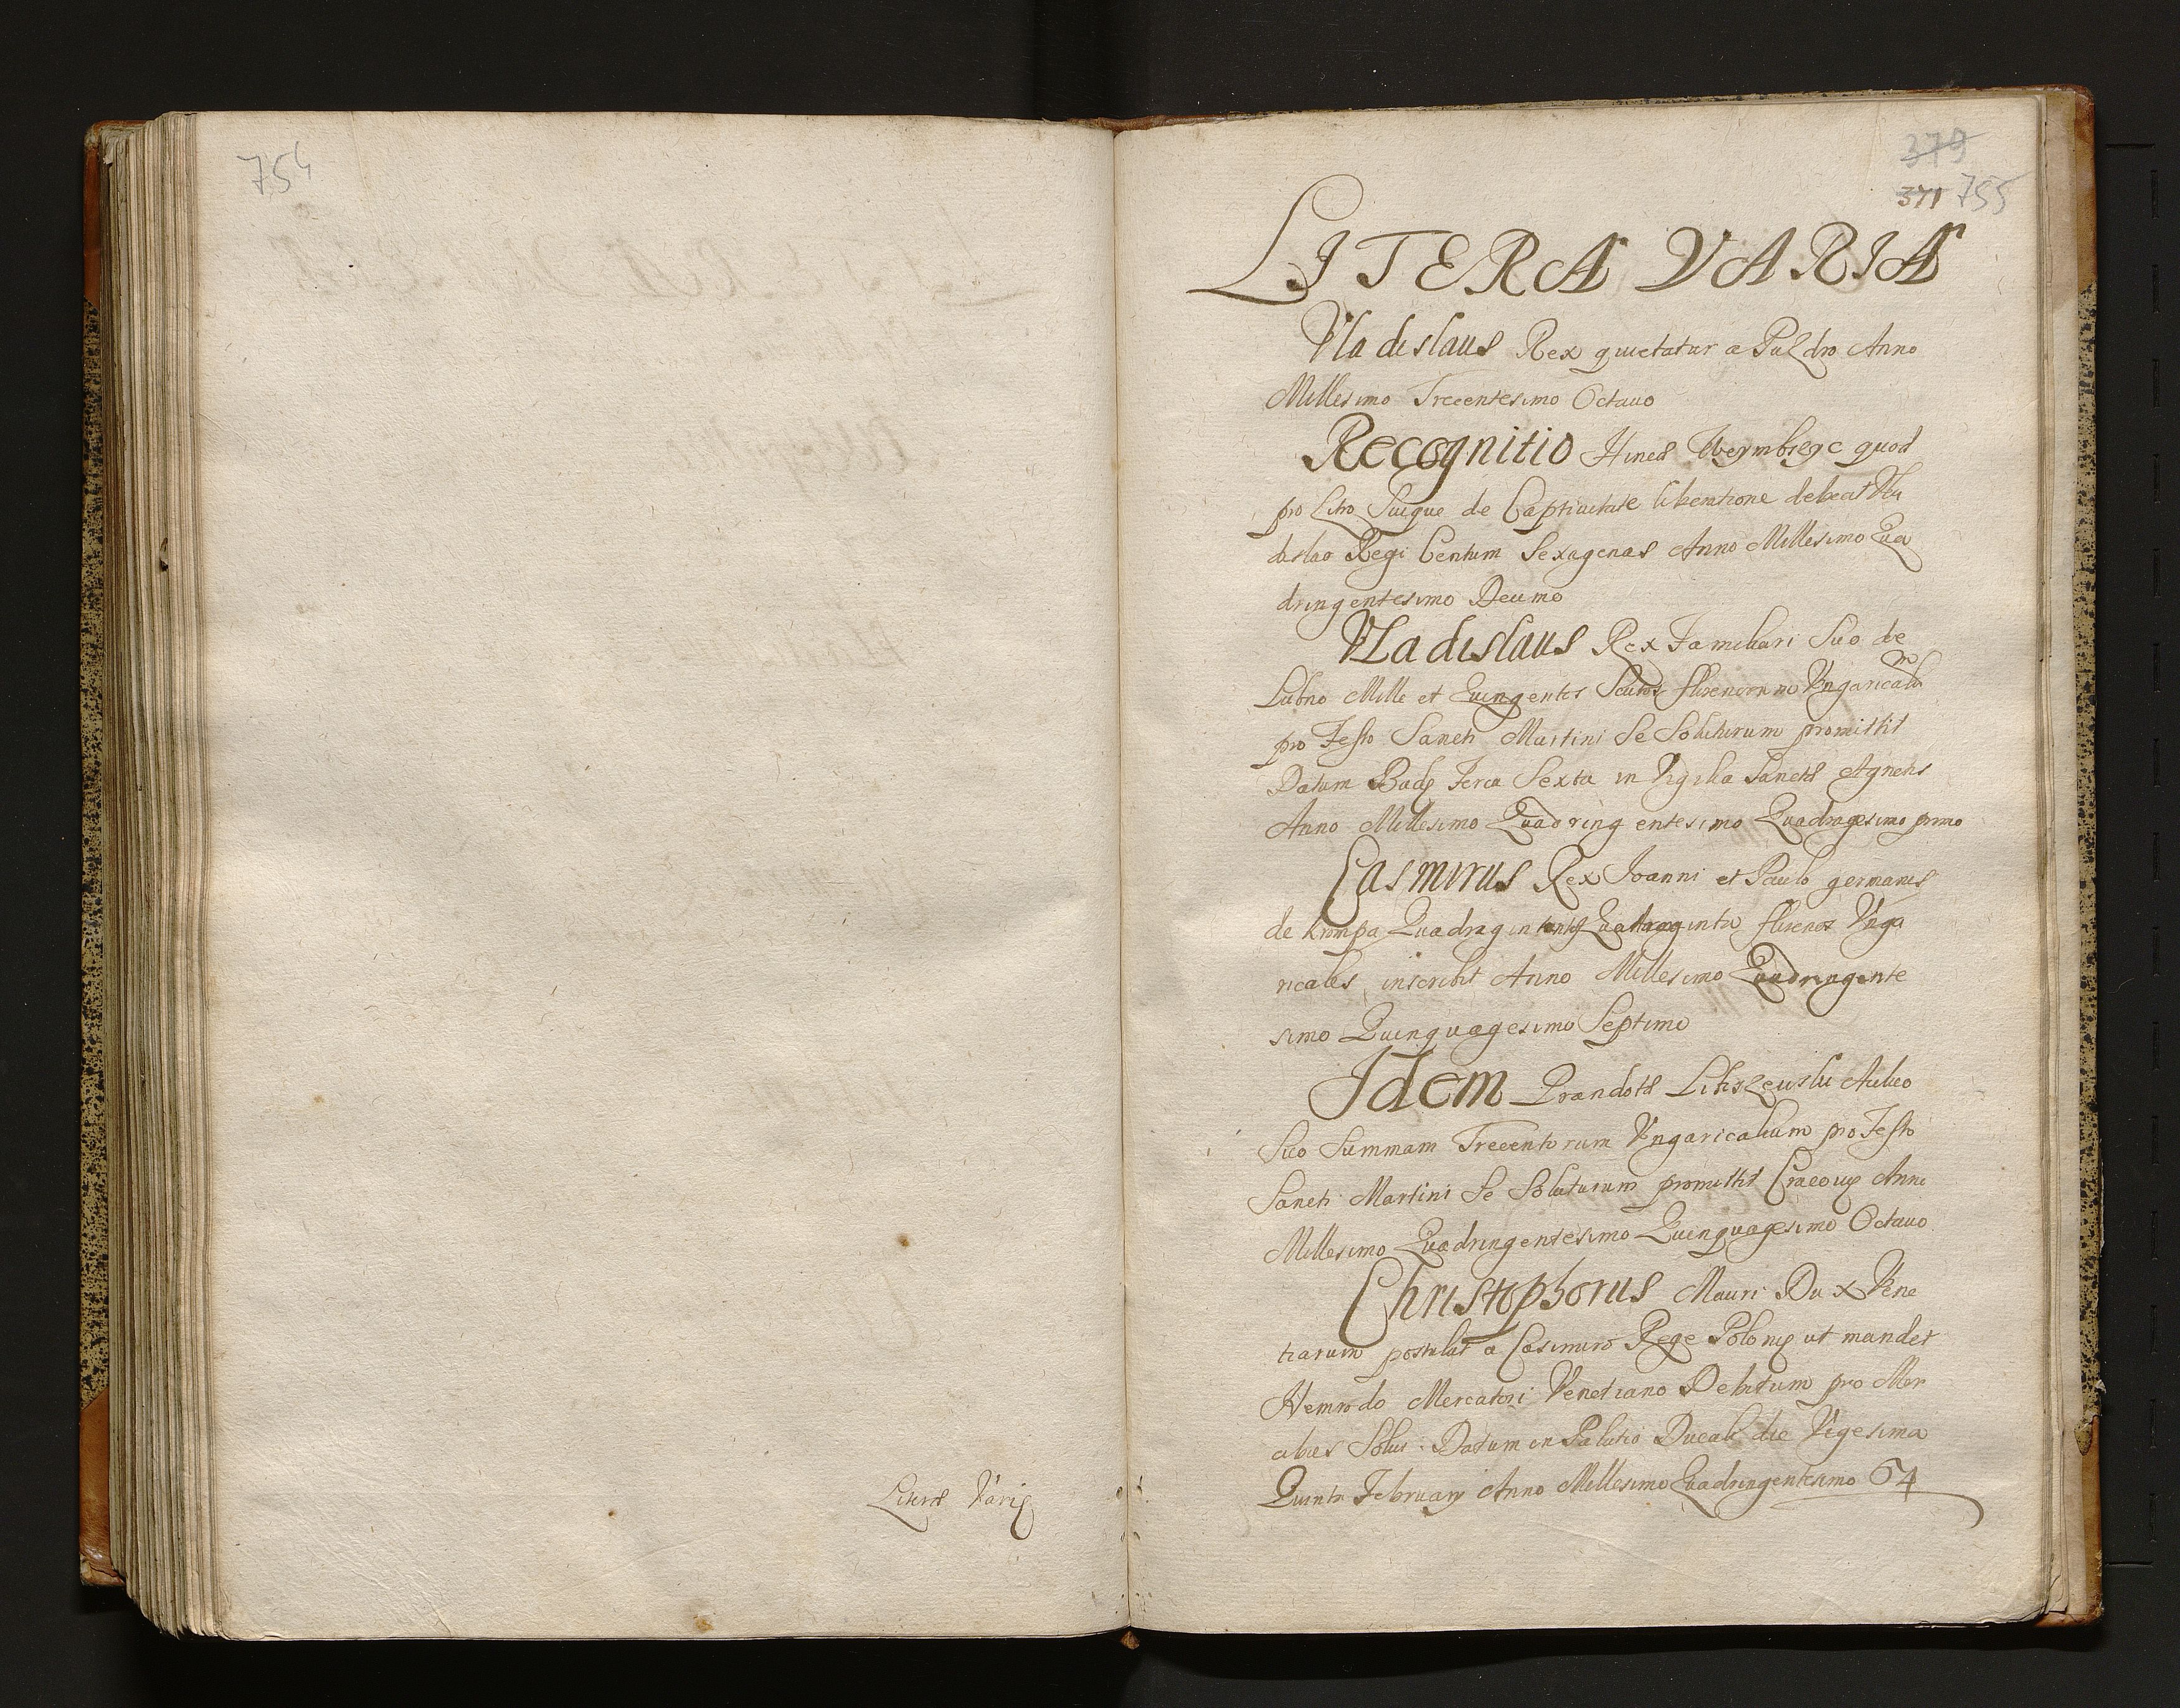 754
Literæ Variæ
379
371 755
LITERÆ VARIÆ
Vladislaus Rex quietatur a Puldro Anno
Millesimo Trecentesimo Octauo
Recognitio Hincæ quod
pro Suique de Captiuitate liberatione debeat Vla
dislao Regi Centum Sexagenas Anno Millesimo Qua
dringentesimo Decimo
Vladislaus Rex Familiari Suo de
Lubno Mille et Quingentos florenorum Vngaricaliū
pro Festo Sancti Martini Se Soluturum promittit
Datum Budę Feria Sexta in Vigilia Sanctæ Agnetis
Anno Millesimo Quadringentesimo Quadragesimo primo
Casimirus Rex Ioanni et Paulo germanis
de Krompa florenos Vnga
ricales inscribit Anno Millesimo Quadringente
simo Quinquagesimo Septimo
Idem Prandotæ Aulico
Suo Summam Trecentorum Vngaricalium pro Festo
Sancti Martini Se Soluturum promittit Cracouię Anno
Millesimo Quadringentesimo Quinquagesimo Octauo
Christophorus Mauri Dux Vene
tiarum postulat a Casimiro Rege Polonię ut mandet
Mercatori Venetiano Debitum pro Mer
cibus Solui: Datum in Palatio Ducali die Vigesima
Quinta February Anno Millesimo Quadringentesimo 64